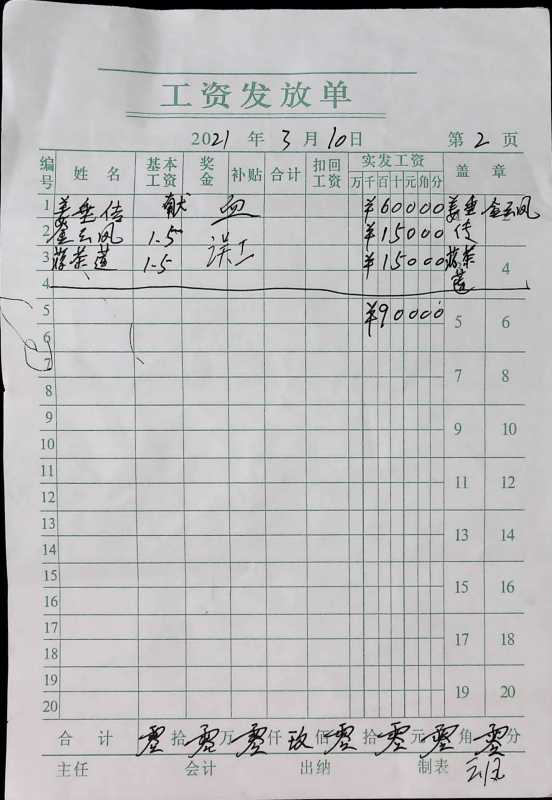 工资发放单
2021 年 3 月 10 日 第 2 页
编号 姓名 基本工资 奖金 补贴 合计 扣回工资 实发工资 盖章
万 千 百 十 元 角 分
1 姜垂传 献 血 ¥60000 姜垂传 金云凤
2 金云凤 1.5 误工 ¥15000
3 蒋荣莲 1.5 ¥15000 蒋荣莲 4
4
5 ¥90000 5 6
6
7 7 8
8
9 9 10
10
11 11 12
12
13 13 14
14
15 15 16
16
17 17 18
18
19 19 20
20
合计 零 拾 零 万 零 仟 玖 佰 零 拾 零 元 零 角 零 分
主任 会计 出纳 制表